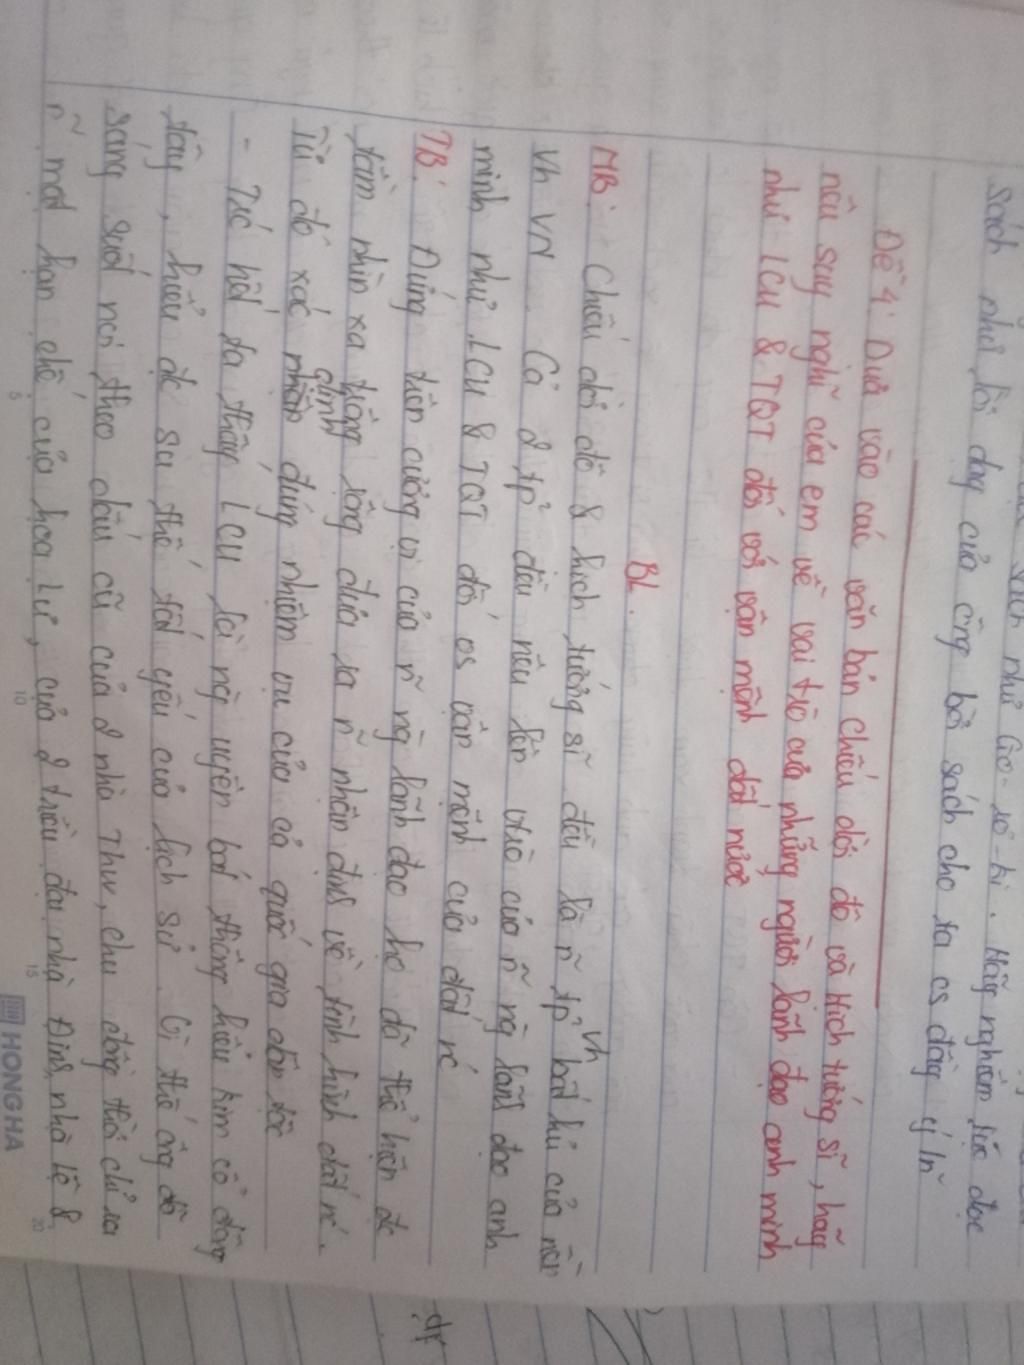 sách như lời dạy của ông bởi sách cho ta cs đầy ý
Đề 4: Dựa vào các văn bản chiếu dời đô và Hịch tướng sĩ, hãy
nêu suy nghĩ của em về vai trò của những người lãnh đạo anh minh
như LCU & TQT đối với vận mệnh đất nước
BL.
MB: Chiếu dời đô & hịch tướng sĩ đều là ~ tp² vh bất hủ của nền
Vh VN. Cả 2 tp² đều nêu lên vtrò của ~ ng lãnh đạo anh
minh như LCU & TQT đối vs vận mệnh của đất nc
TB: Đứng trên cương vị của ~ ng lãnh đạo họ đã thể hiện đc
tầm nhìn xa trông rộng đưa ra ~ nhận định về tình hình đất nc.
Từ đó xác định đúng nhiệm vụ của cả quốc gia dân tộc
- Trc hết ta thấy LCU là ng uyên bác thông hiểu kim cổ đông
tây, hiểu đc sự thế tất yếu của lịch sử. Vì thế ông đã
sáng suốt noi theo dấu cũ của 2 nhà Thw, chu đồng thời chỉ ra
~ mặt hạn chế của hoa Lư, của 2 triều đại nhà Đinh, nhà lê &
5 10 15 20
HONG HA